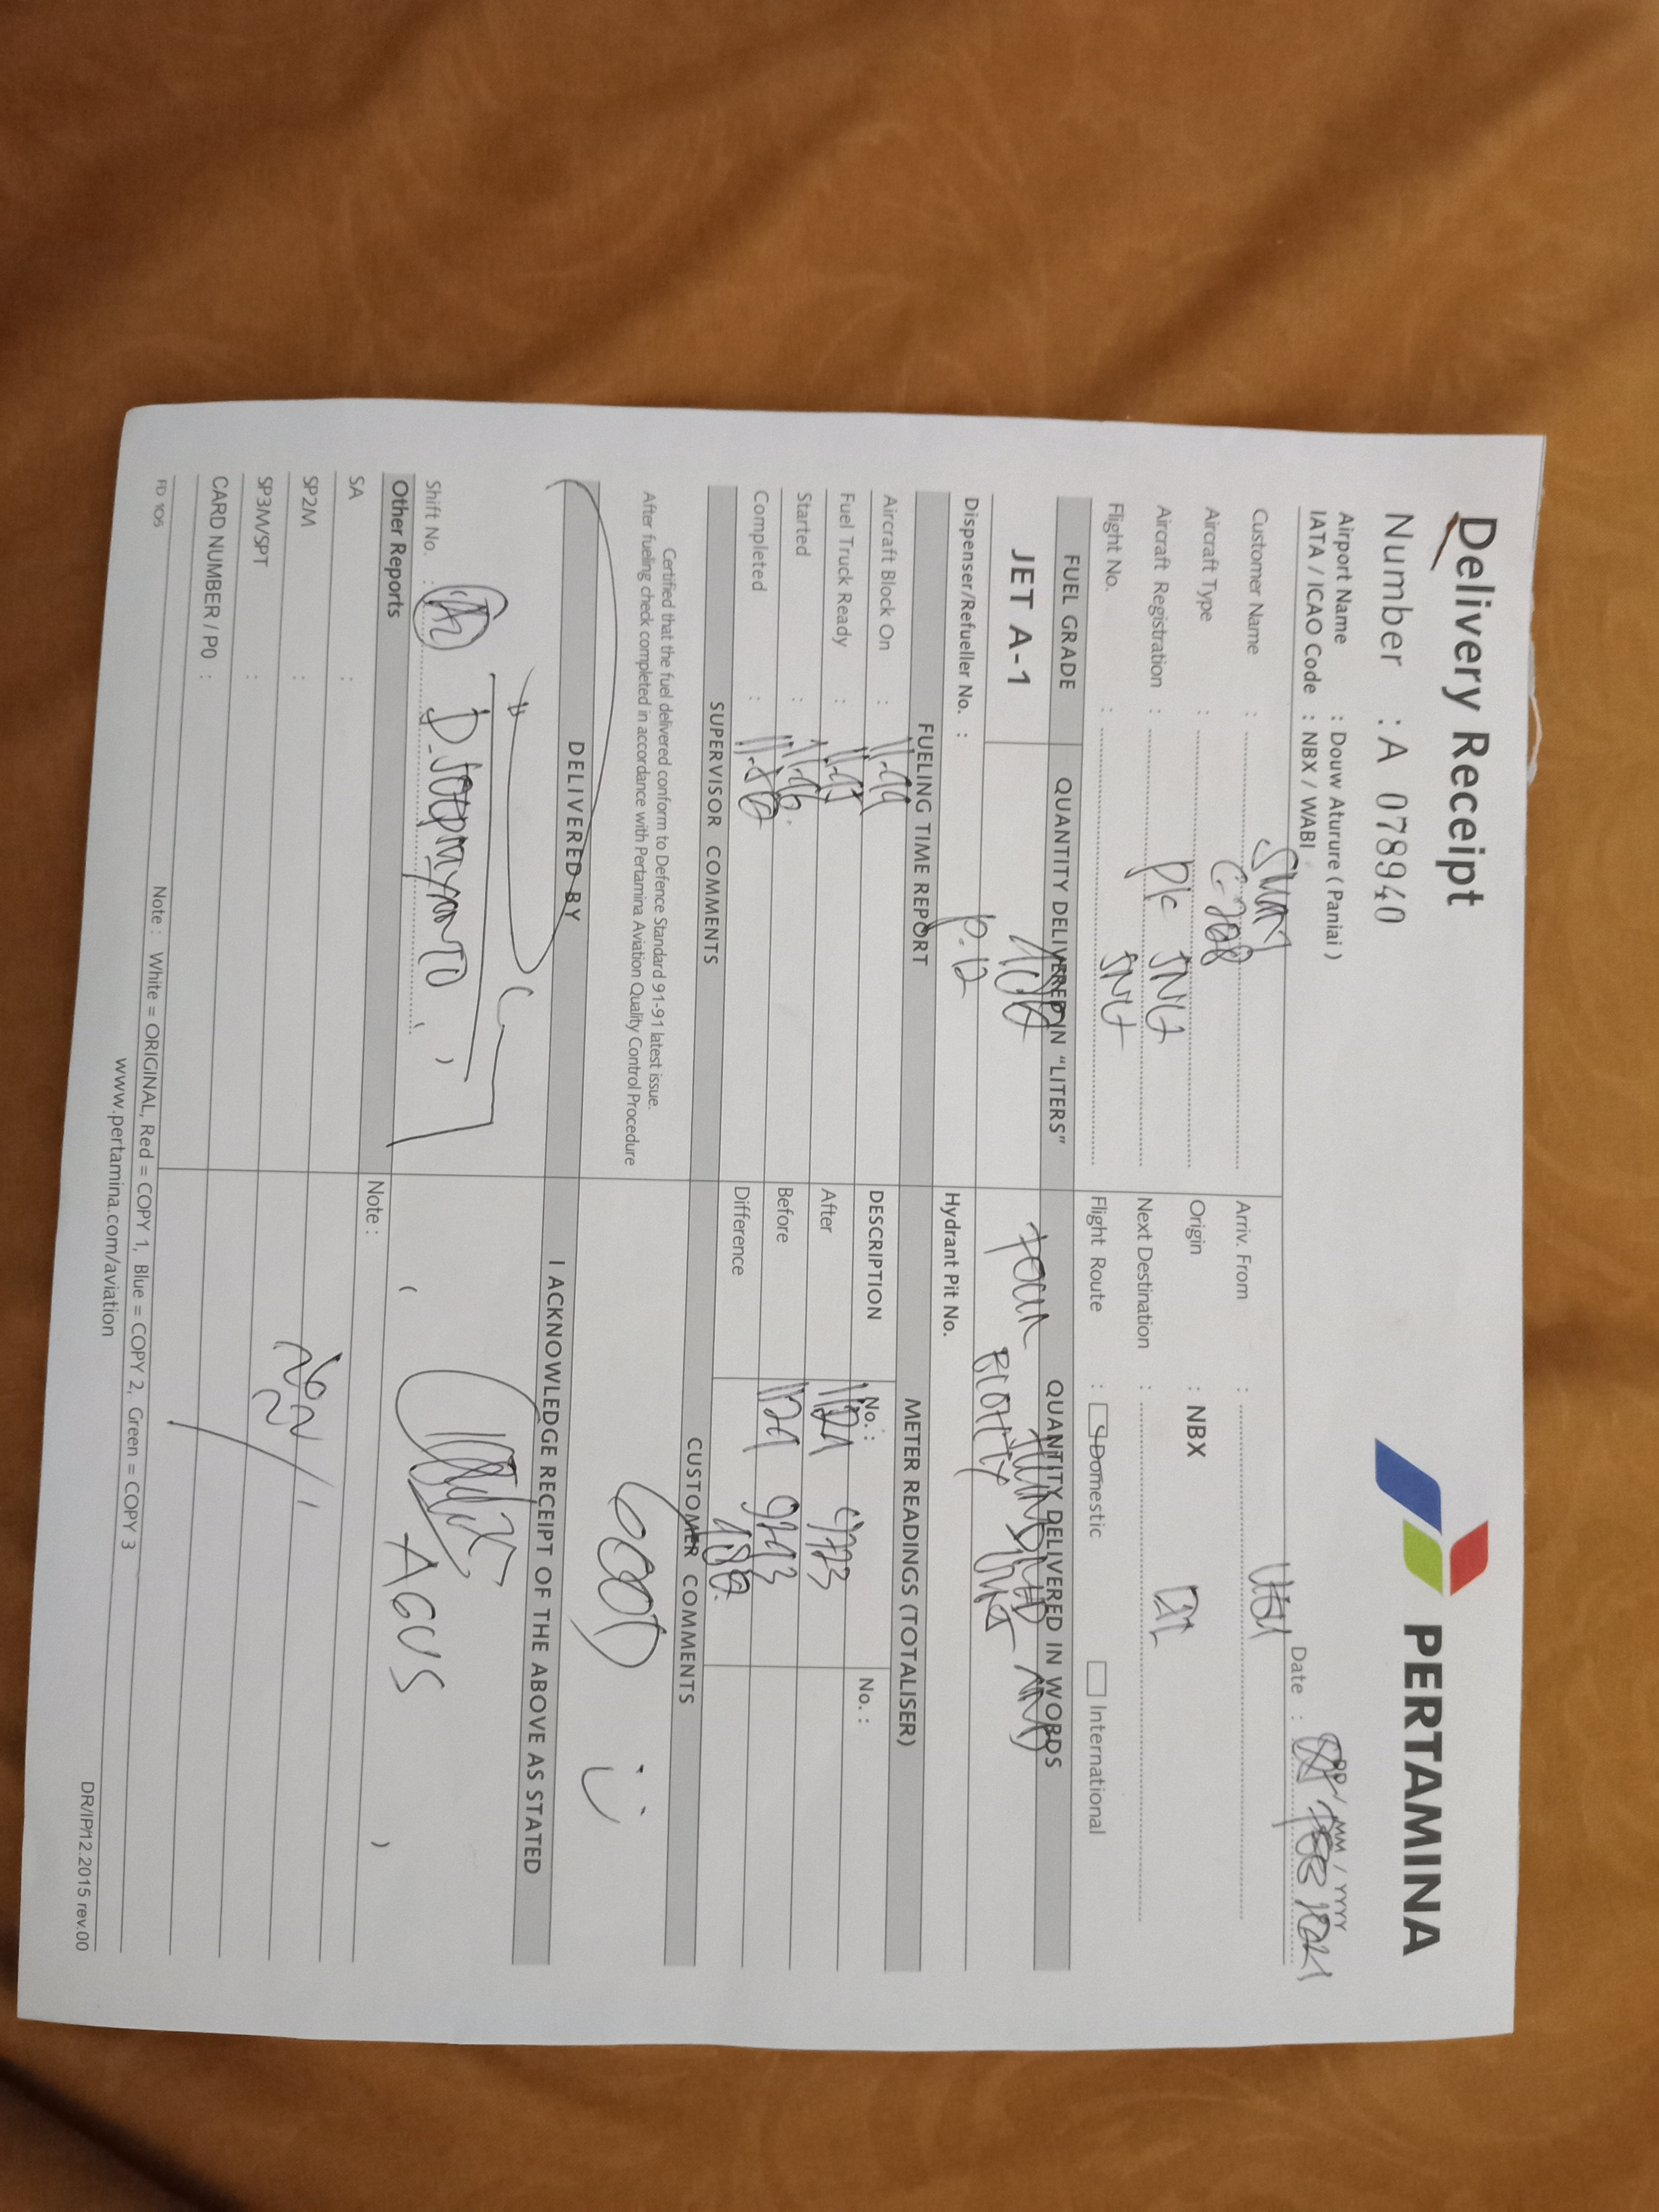 Delivery Receipt
PERTAMINA
Number : A 078940
Airport Name : Douw Aturure ( Paniai )
IATA / ICAO Code : NBX / WABI
Date : DD / MM / YYYY
Customer Name :
Arriv. From :
Aircraft Type : C-208
Origin : NBX
Aircraft Registration : PK SNU
Next Destination :
Flight No. : SNU
Flight Route : Domestic International
FUEL GRADE
QUANTITY DELIVERED IN "LITERS"
QUANTITY DELIVERED IN WORDS
JET A-1
FOUR HUNDRED AND EIGHTY
Dispenser/Refueller No. : P.12
Hydrant Pit No.
FUELING TIME REPORT
METER READINGS (TOTALISER)
Aircraft Block On : 11.44
DESCRIPTION No. : No. :
Fuel Truck Ready : 11.45
After
Started : 11.46
Before
Completed :
Difference
SUPERVISOR COMMENTS
CUSTOMER COMMENTS
Certified that the fuel delivered conform to Defence Standard 91-91 latest issue.
After fueling check completed in accordance with Pertamina Aviation Quality Control Procedure
GOOD
DELIVERED BY
I ACKNOWLEDGE RECEIPT OF THE ABOVE AS STATED
Shift No. :
AGUS
Other Reports
Note :
SA :
SP2M :
SP3M/SPT :
CARD NUMBER / PO :
FD 105
Note : White = ORIGINAL, Red = COPY 1, Blue = COPY 2, Green = COPY 3
www.pertamina.com/aviation
DR/IP/12.2015 rev.00